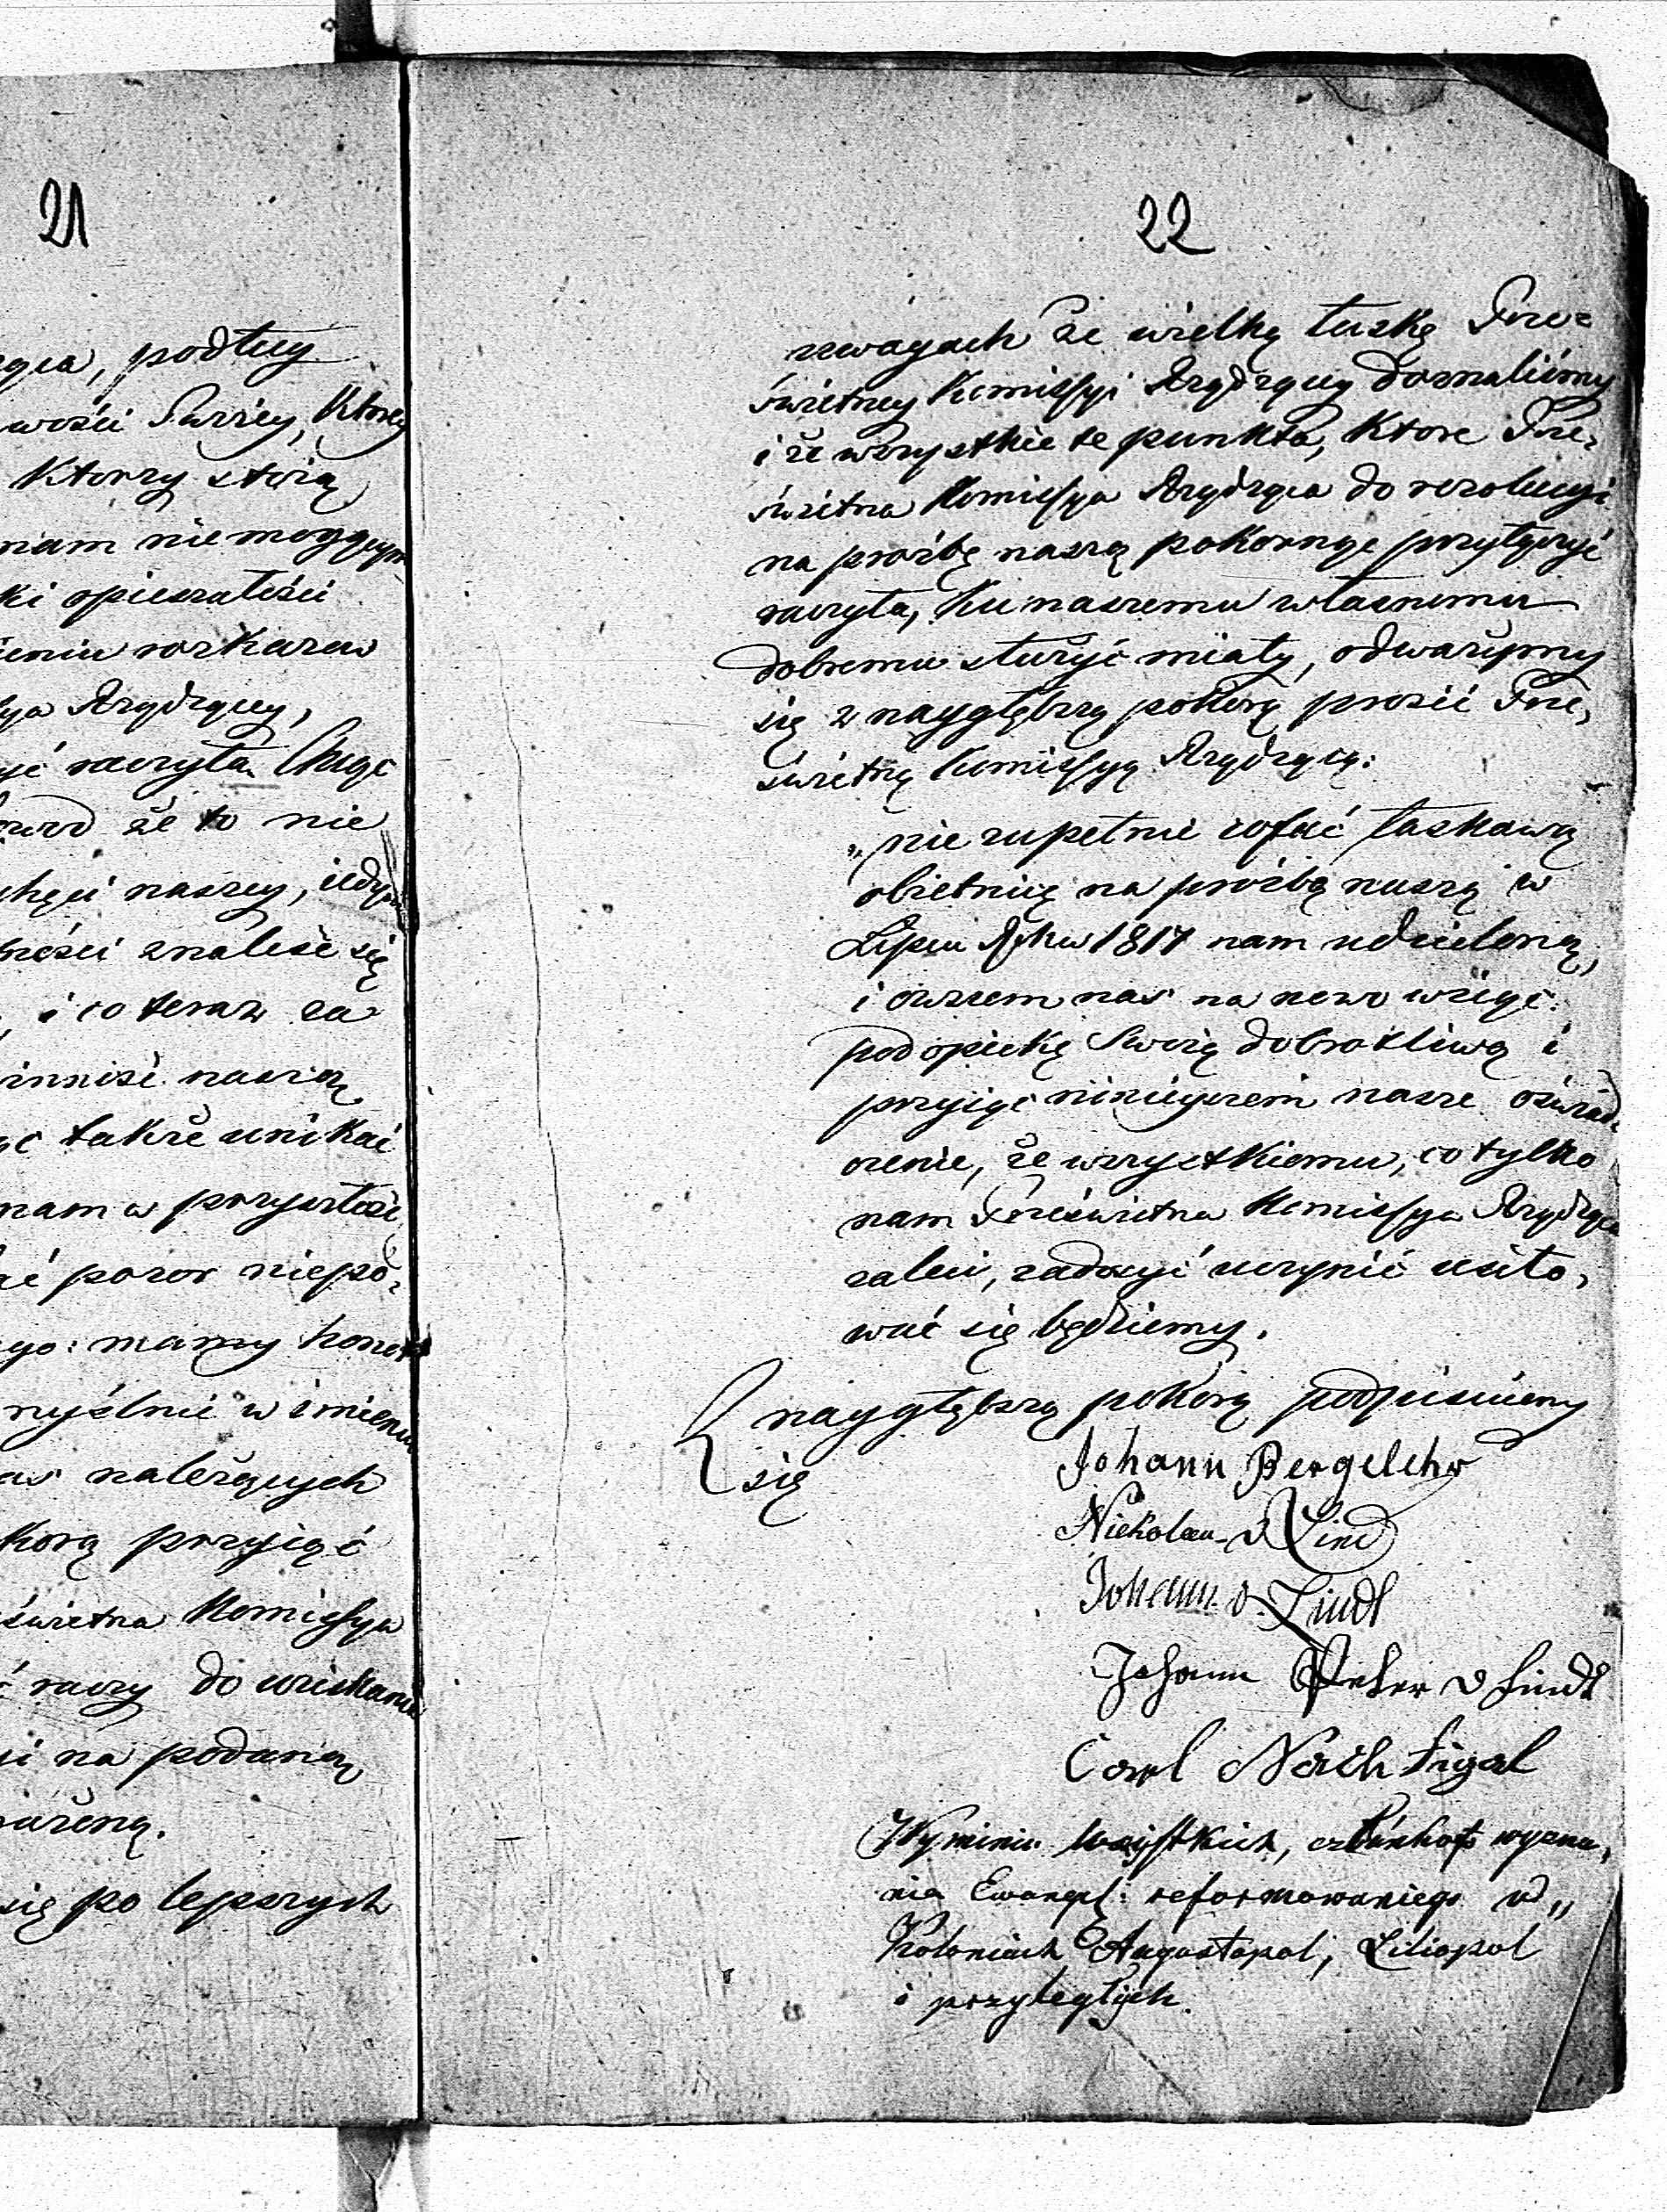 21
podług
wości Swéiey, Ktorey
Ktorzy stoią
nam niemogącym
ki opieszałości
rozkazow
Rządzącey,
raczyła Chcąc
że to nie
chęci naszey, iedyn
znaleść się
i co teraz za
naszą
także unikać
nam w przyszłość
pozor niepo-
mamy honor
w imieniu
należących
przyiąć
świetna Komissya
raczy do uzyskania
na podaną
się po lepszych
22
uwagach że wielką łaskę Prze-
świetney Komissyi Rządzącey doznaliśmy
i że wszystkie te punkta, Ktore Prze-
świetna Komissya Rządząca do rezolucyi
na prośbę naszą pokorną przyłączyć
raczyła, Ku naszemu własnemu
dobremu służyć miały, odważymy
się z naygłębszą pokorą prosić Prze-
świetną Komissyą Rządzącą:
„nie zupełnie cofać łaskawą
obietnicę na prośbę naszą w
Lipcu Roku 1817 nam udzieloną,
i owszem nas na nowo wziąć
pod opiekę Swoią dobrotliwą i
przyiąć ninieyszem nasze oświad-
czenie, że wszystkiemu, co tylko
nam Prześwietna Komissya Rządząca
zaleci, zadosyć uczynić usiło-
wać się będziemy.
Z naygłębszą pokorą podpisuiemy
się
Johann Bergelehr
Nickolau v Lind
Johann v. Lindt
Johann Peter v Lindt
Carl Nachtigal
W ymieniu wszystkich, członkow wyzna-
nia Ewangel: reformowaniego w„
Koloniach Augustopol, Liliopol
i przyległych.